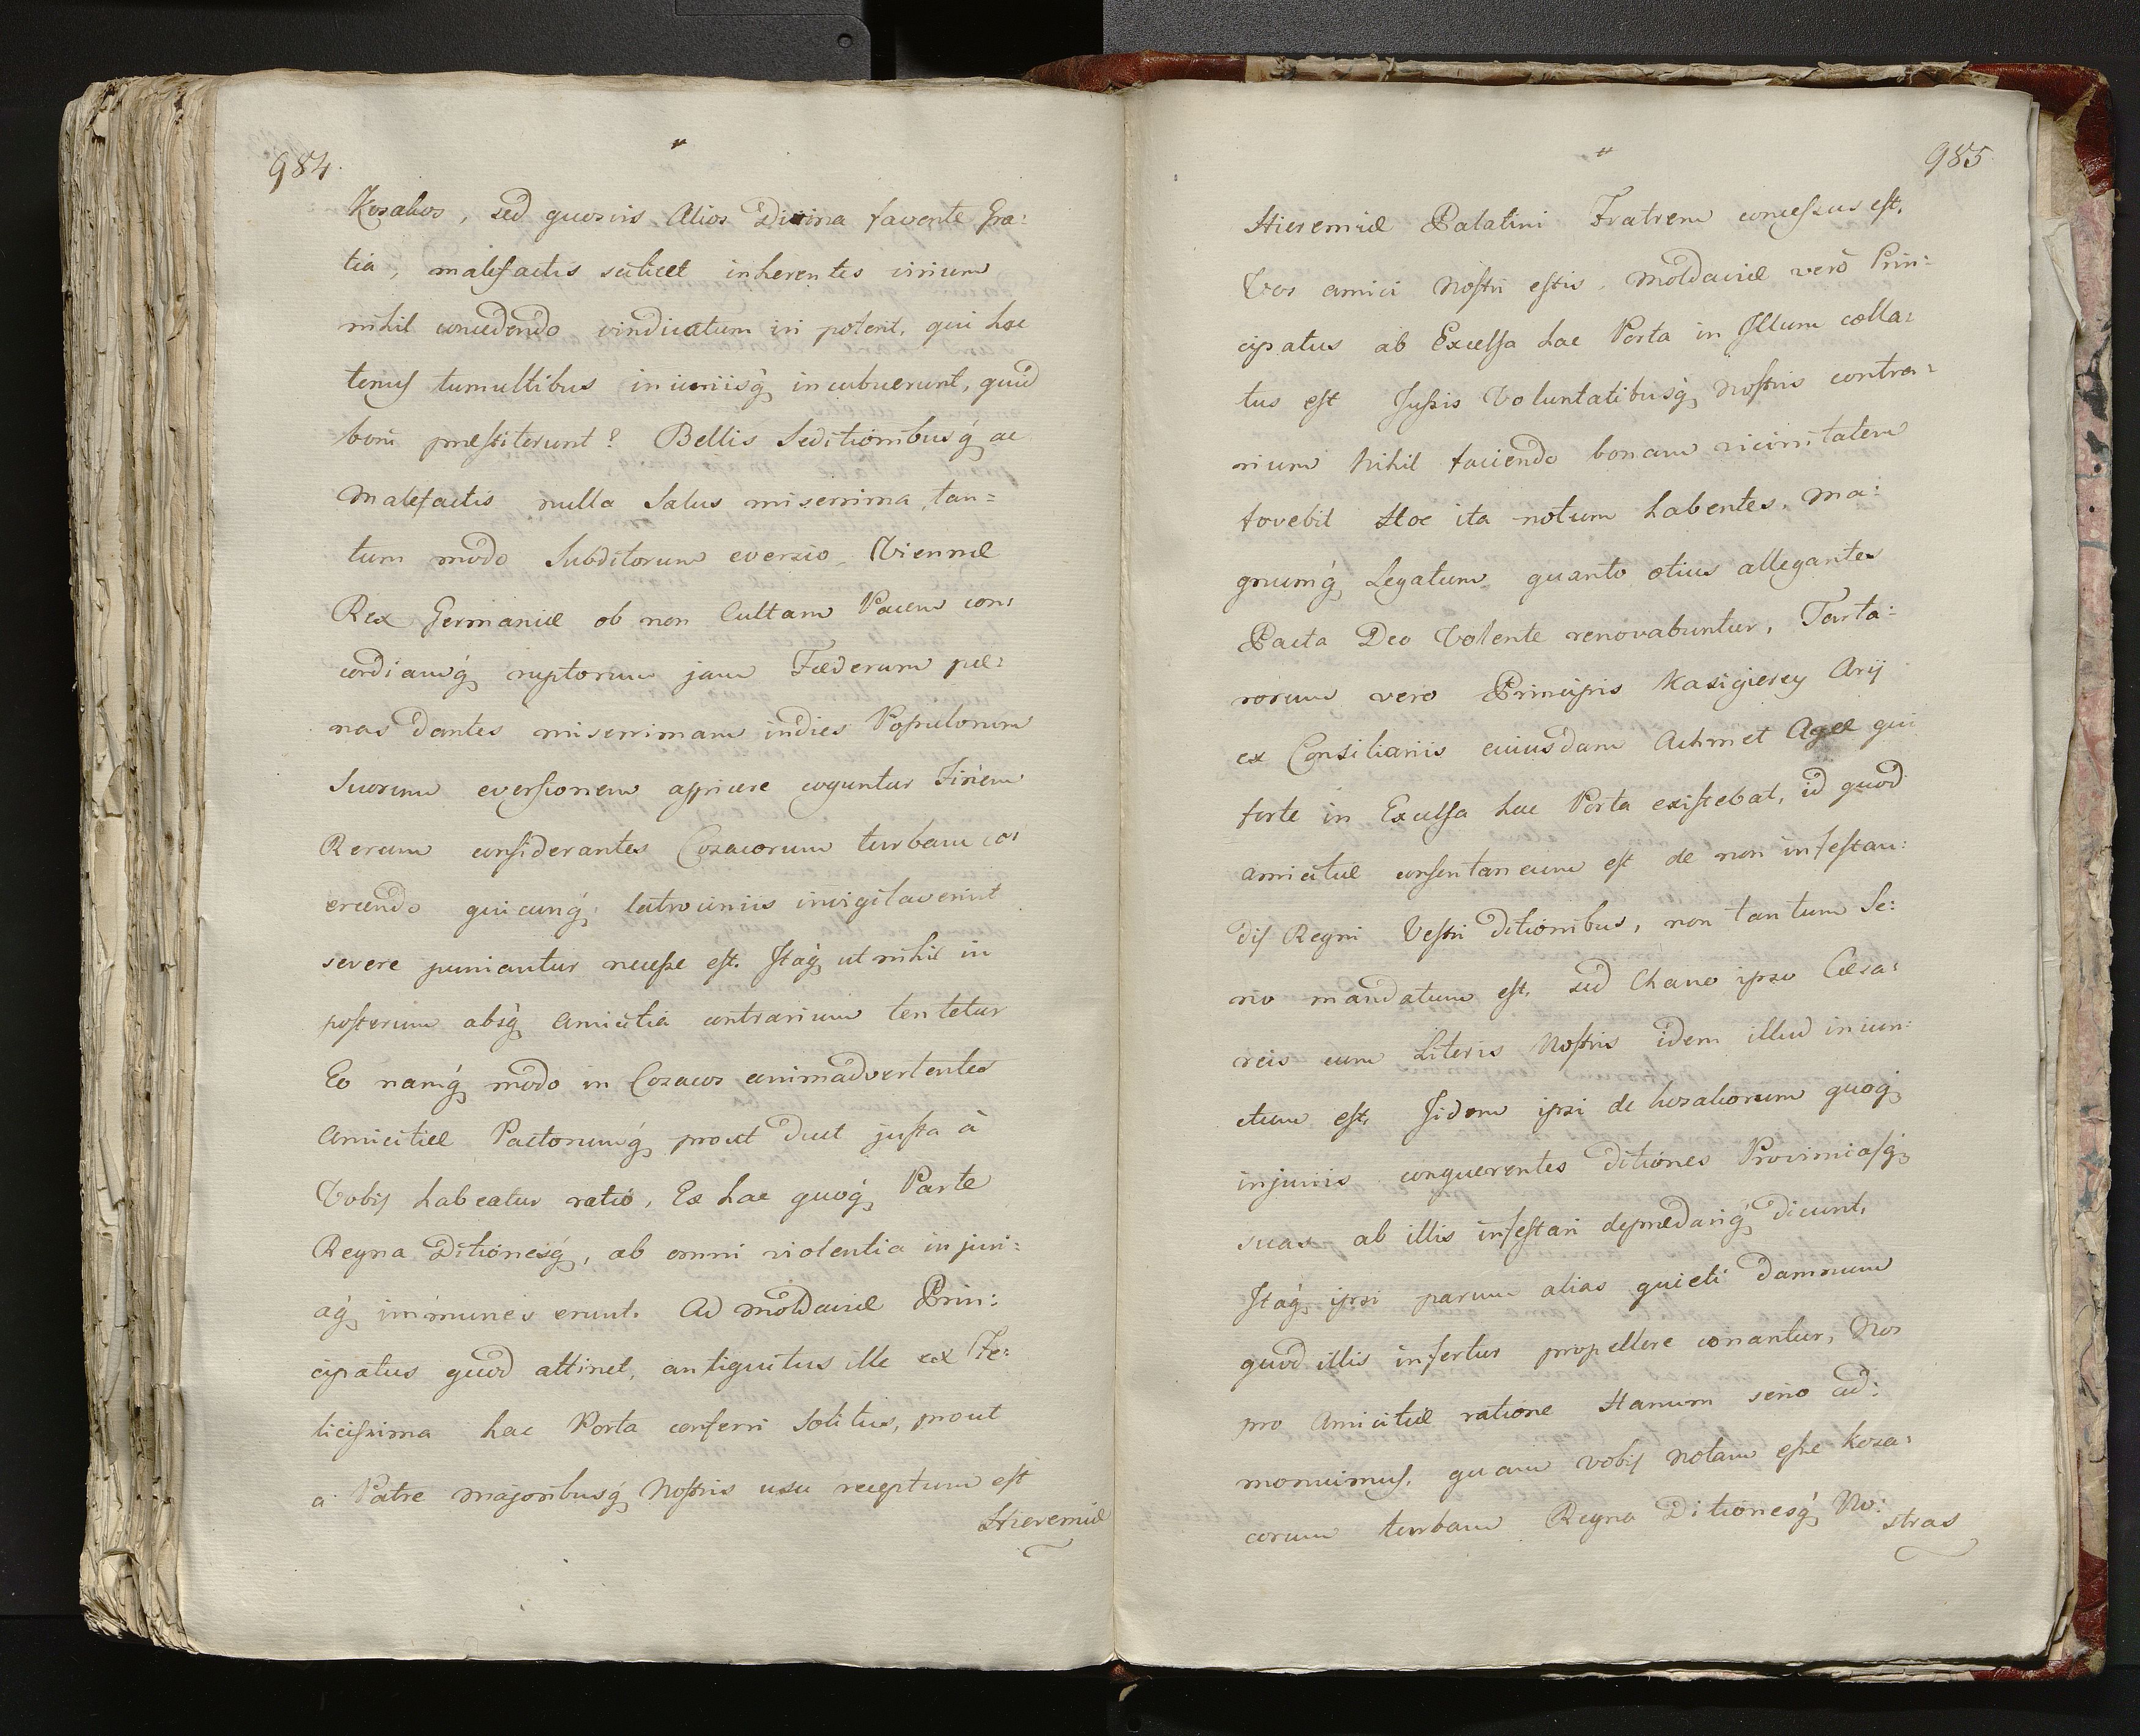 984.
Kosakos, sed quosvis Alios Divina favente Gra:
tia, malefactis scilicet inherentes irium
nihil concedendo vindicatum iri potent. qui hac
tenus tumultibus iniuriisq́ incubuerunt, quid
boni præstiterunt? Bellis Seditionibusq́ ac
Malefactis nulla Salus miserrima tan=
tum modo Subditorum eversio. Viennæ
Rex Germaniæ ob non Cultam Pacem con:
cordiamq́ ruptorum jam Fæderum pæ:
nas dantes miserrimam indies Populorum
Suorum eversionem aspicere coguntur Finem
Rerum considerantes Cozacorum turbam co:
ercendo quicunq́ latrociniis invigilaverint
severe puniantur necesse est. Itaq́ ut nihil in
posterum absq́ Amicitia contrarium tentetur
Eo namq́ modo in Cozacos animadvertentes
Amicitiæ Pactorumq́ prout Duet justa à
Vobis habeatur ratio, Ex hac quoq́ Parte
Regna Ditionesq́, ab omni violentia injuri:
aq́ immunes erunt. Ad Moldaviæ Prin:
cipatus quod attinet, antiquitus ille ex Fe:
licissima hac Porta conferri Solitus, prout
a Patre majoribusq́ Nostris usu receptum est
Hieremiæ
985.
Hieremiæ Palatini Fratrem concessus est.
Vos amici Nostri estis. Moldaviæ verò Prin:
cipatus ab Excelsa hac Porta in Illum colla:
tus est Jussis Voluntatibusq́ Nostris contra:
rium Nihil faciendo bonam vicinitatem
fovebit Hoc ita notum habentes. Ma:
gnumq́ Legatum quanto otius allegantes
Pacta Deo Volente renovabuntur, Tarta:
rorum vero Principis Kasigierey Arij
ex Consiliariis cuiusdam Achmet Agæ qui
forte in Excelsa hac Porta existebat, id quod
amicitiæ consentaneum est de non infestan:
dis Regni Vestri Ditionibus, non tantum Se:
rio mandatum est, sed Chano ipso Cæsa:
reis cum Literis Nostris idem illud iniun:
ctum est. Iidem ipsi de Kosakorum quoq́
injuriis conquerentes Ditiones Provinciasq́
suas ab illis infestari deprædariq́ dicunt.
Itaq́ ipsi parum alias quieti Damnum
quod illis infertur propellere conantur, Nos
pro Amicitiæ ratione Hanum serio ad:
monuimus. quam vobis notam esse Koza:
corum turbam Regna Ditionesq́ No:
stras